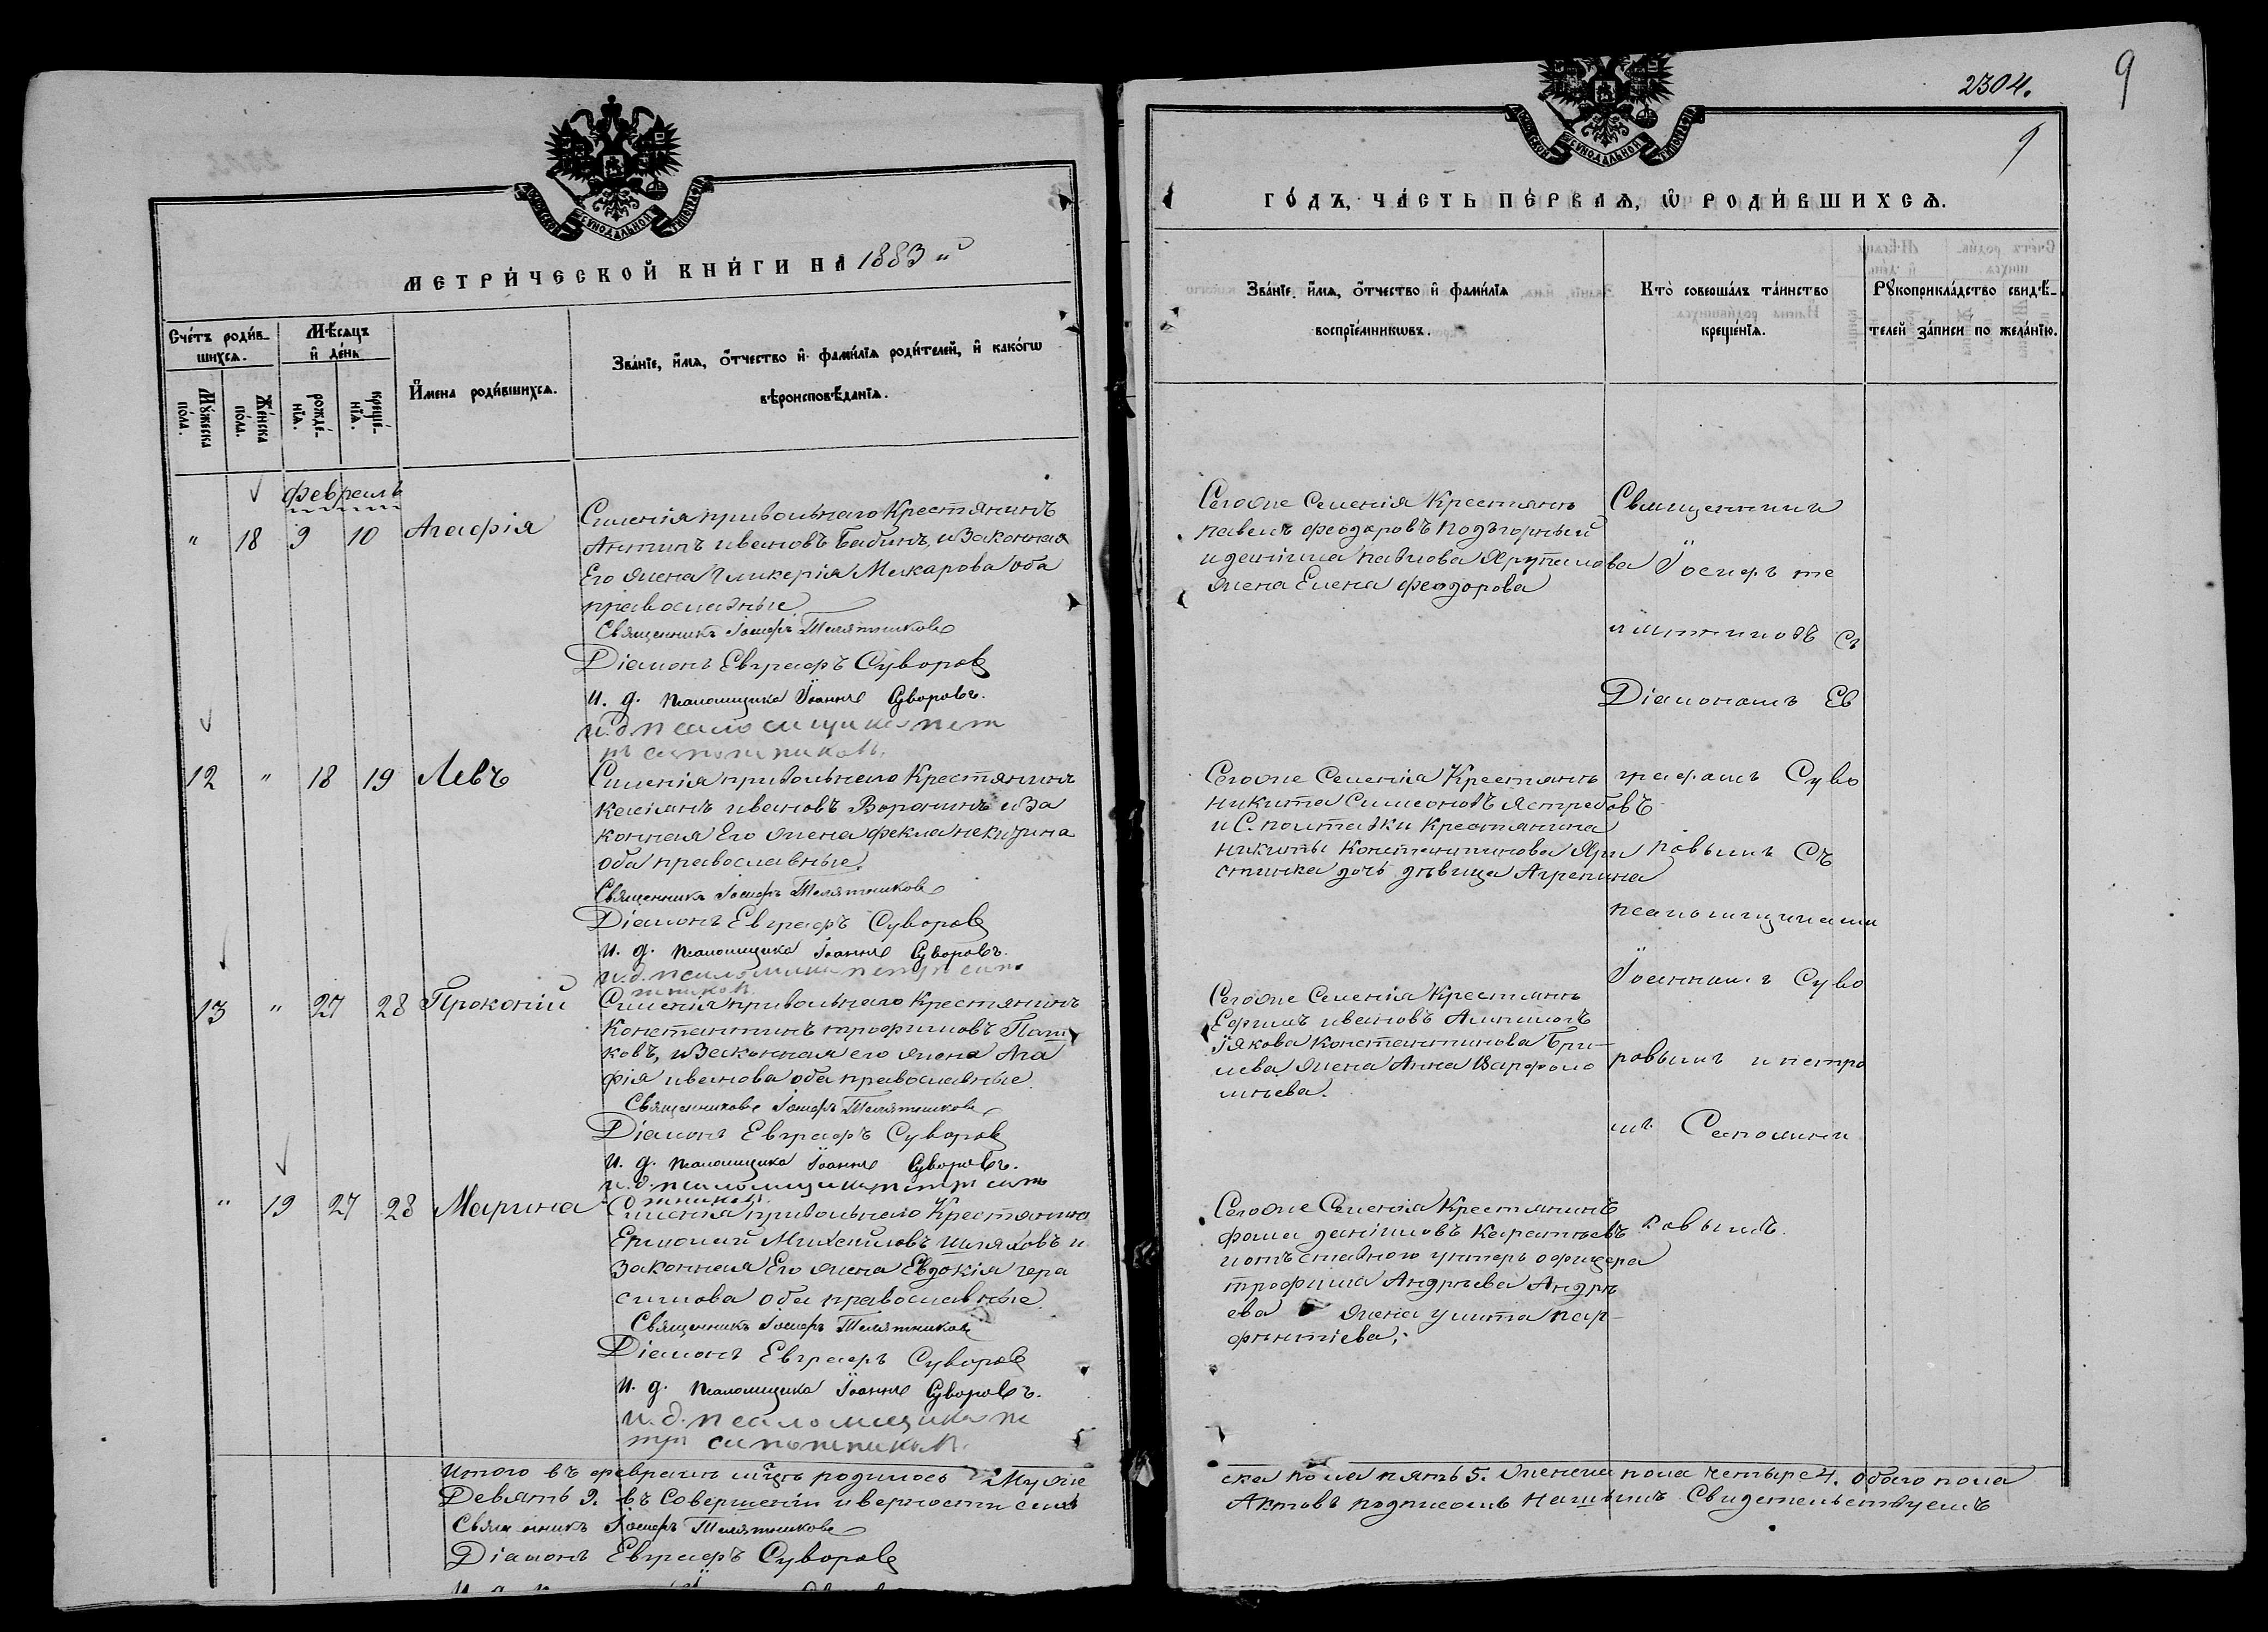 МЕТРИ́ЧЕСКОЙ КНИ́ГИ НА 1883 й
Сче́тъ роди́в-
шихся.
Мѣ́сяцъ
и҆ де́нь
Мꙋ́жеска
по́ла.
Же́нска
по́ла.
рожде́-
нїѧ.
креще́-
нїѧ.
И҆мена роди́вшихсѧ.
Зва́нїе, и҆́мѧ, ѻ҆́тчество и҆ фами́лїѧ роди́телей, и҆ како́гѡ
вѣроисповѣ́данїѧ.
Февраль
" 18 9 10 Агафія
Селенія привольнаго Крестянинъ
Антипъ ивановъ Бабинъ, и Законная
Его жена Гликерія Макарова оба
православные.
Священникъ Іосифъ Телятниковъ
Діаконъ Евграфъ Суворовъ
И. д. псаломщика Іоаннъ Суворовъ.
и.д. псаломщика пет
ръ сапожниковъ.
12 " 18 19 Левъ
Селенія привольнаго Крестянинъ
Касіянъ ивановъ Воронинъ и За
конная Его жена фекла никитина
оба православные.
Священникъ Іосифъ Телятниковъ
Діаконъ Евграфъ Суворовъ
И. д. псаломщика Іоаннъ Суворовъ.
и.д. псаломщика петръ сапо
жниковъ.
13 " 27 28 Прокопій
Селенія привольнаго Крестянинъ
Константинъ трофимовъ Паш
ковъ, и Законная его жена Ага
фія иванова оба православные.
Священникъ Іосифъ Телятниковъ
Діаконъ Евграфъ Суворовъ
И. д. псаломщика Іоаннъ Суворовъ.
и.д. псаломщика петръ сапо
жниковъ.
" 19 27 28 Марина
Селенія привольнаго Крестянинъ
Ермолай Михайловъ Шляховъ и
Законная Его жена Евдокія гера
симова оба православные.
Священникъ Іосифъ Телятниковъ
Діаконъ Евграфъ Суворовъ
И. д. псаломщика Іоаннъ Суворовъ.
и.д. псаломщика пе
тръ сапожниковъ.
Итого въ февралѣ мцѣ родилось Муже
Девять 9. въ Совершеніи и верности сихъ
Священникъ Іосифъ Телятниковъ
Діаконъ Евграфъ Суворовъ
2304.
9
9
ГО́ДЪ, ЧА́СТЬ ПЕ́РВАѦ, Ѡ҆ РОДИ́ВШИХСѦ.
Зва́нїе, и҆́мѧ, ѻ҆́тчество и҆ фами́лїѧ
воспрїе́мникѡвъ.
Кто̀ соверша́лъ та́инство
креще́нїѧ.
Рꙋкоприкла́дство свидѣ́-
телей за́писи по жела́нїю.
Сегоже Селенія Крестянинъ
павелъ феодоровъ Подъгорный
и данiила павлова Ярупалова
жена Елена феодорова
Сегоже Селенія Крестянинъ
никита Симеоновъ Ястребовъ
и С. полтавки Крестянина
никиты Константинова Хри
стинка дочь девица Агрепина
Сегоже Селенія Крестянинъ
Ефимъ ивановъ
Іякова Константинова
жена Анна Варфоло
мѣева.
Сегоже Селенія Крестянинъ
фома даниловъ
и отъставного унтеръ офицера
трофима Андрѣева Андрѣ
ева жена улита пар-
фентіева.
Священникъ
Іосифъ те
лятниковъ съ
Діакономъ Ев
графомъ Суво
ровымъ Съ
псаломщиками
Іоанномъ Суво
ровымъ и петро
мъ Сапожни
ковымъ.
ска пола пять 5. женска пола четыре 4. обоего пола
Актовъ подписомъ нашимъ Свидетельствуемъ